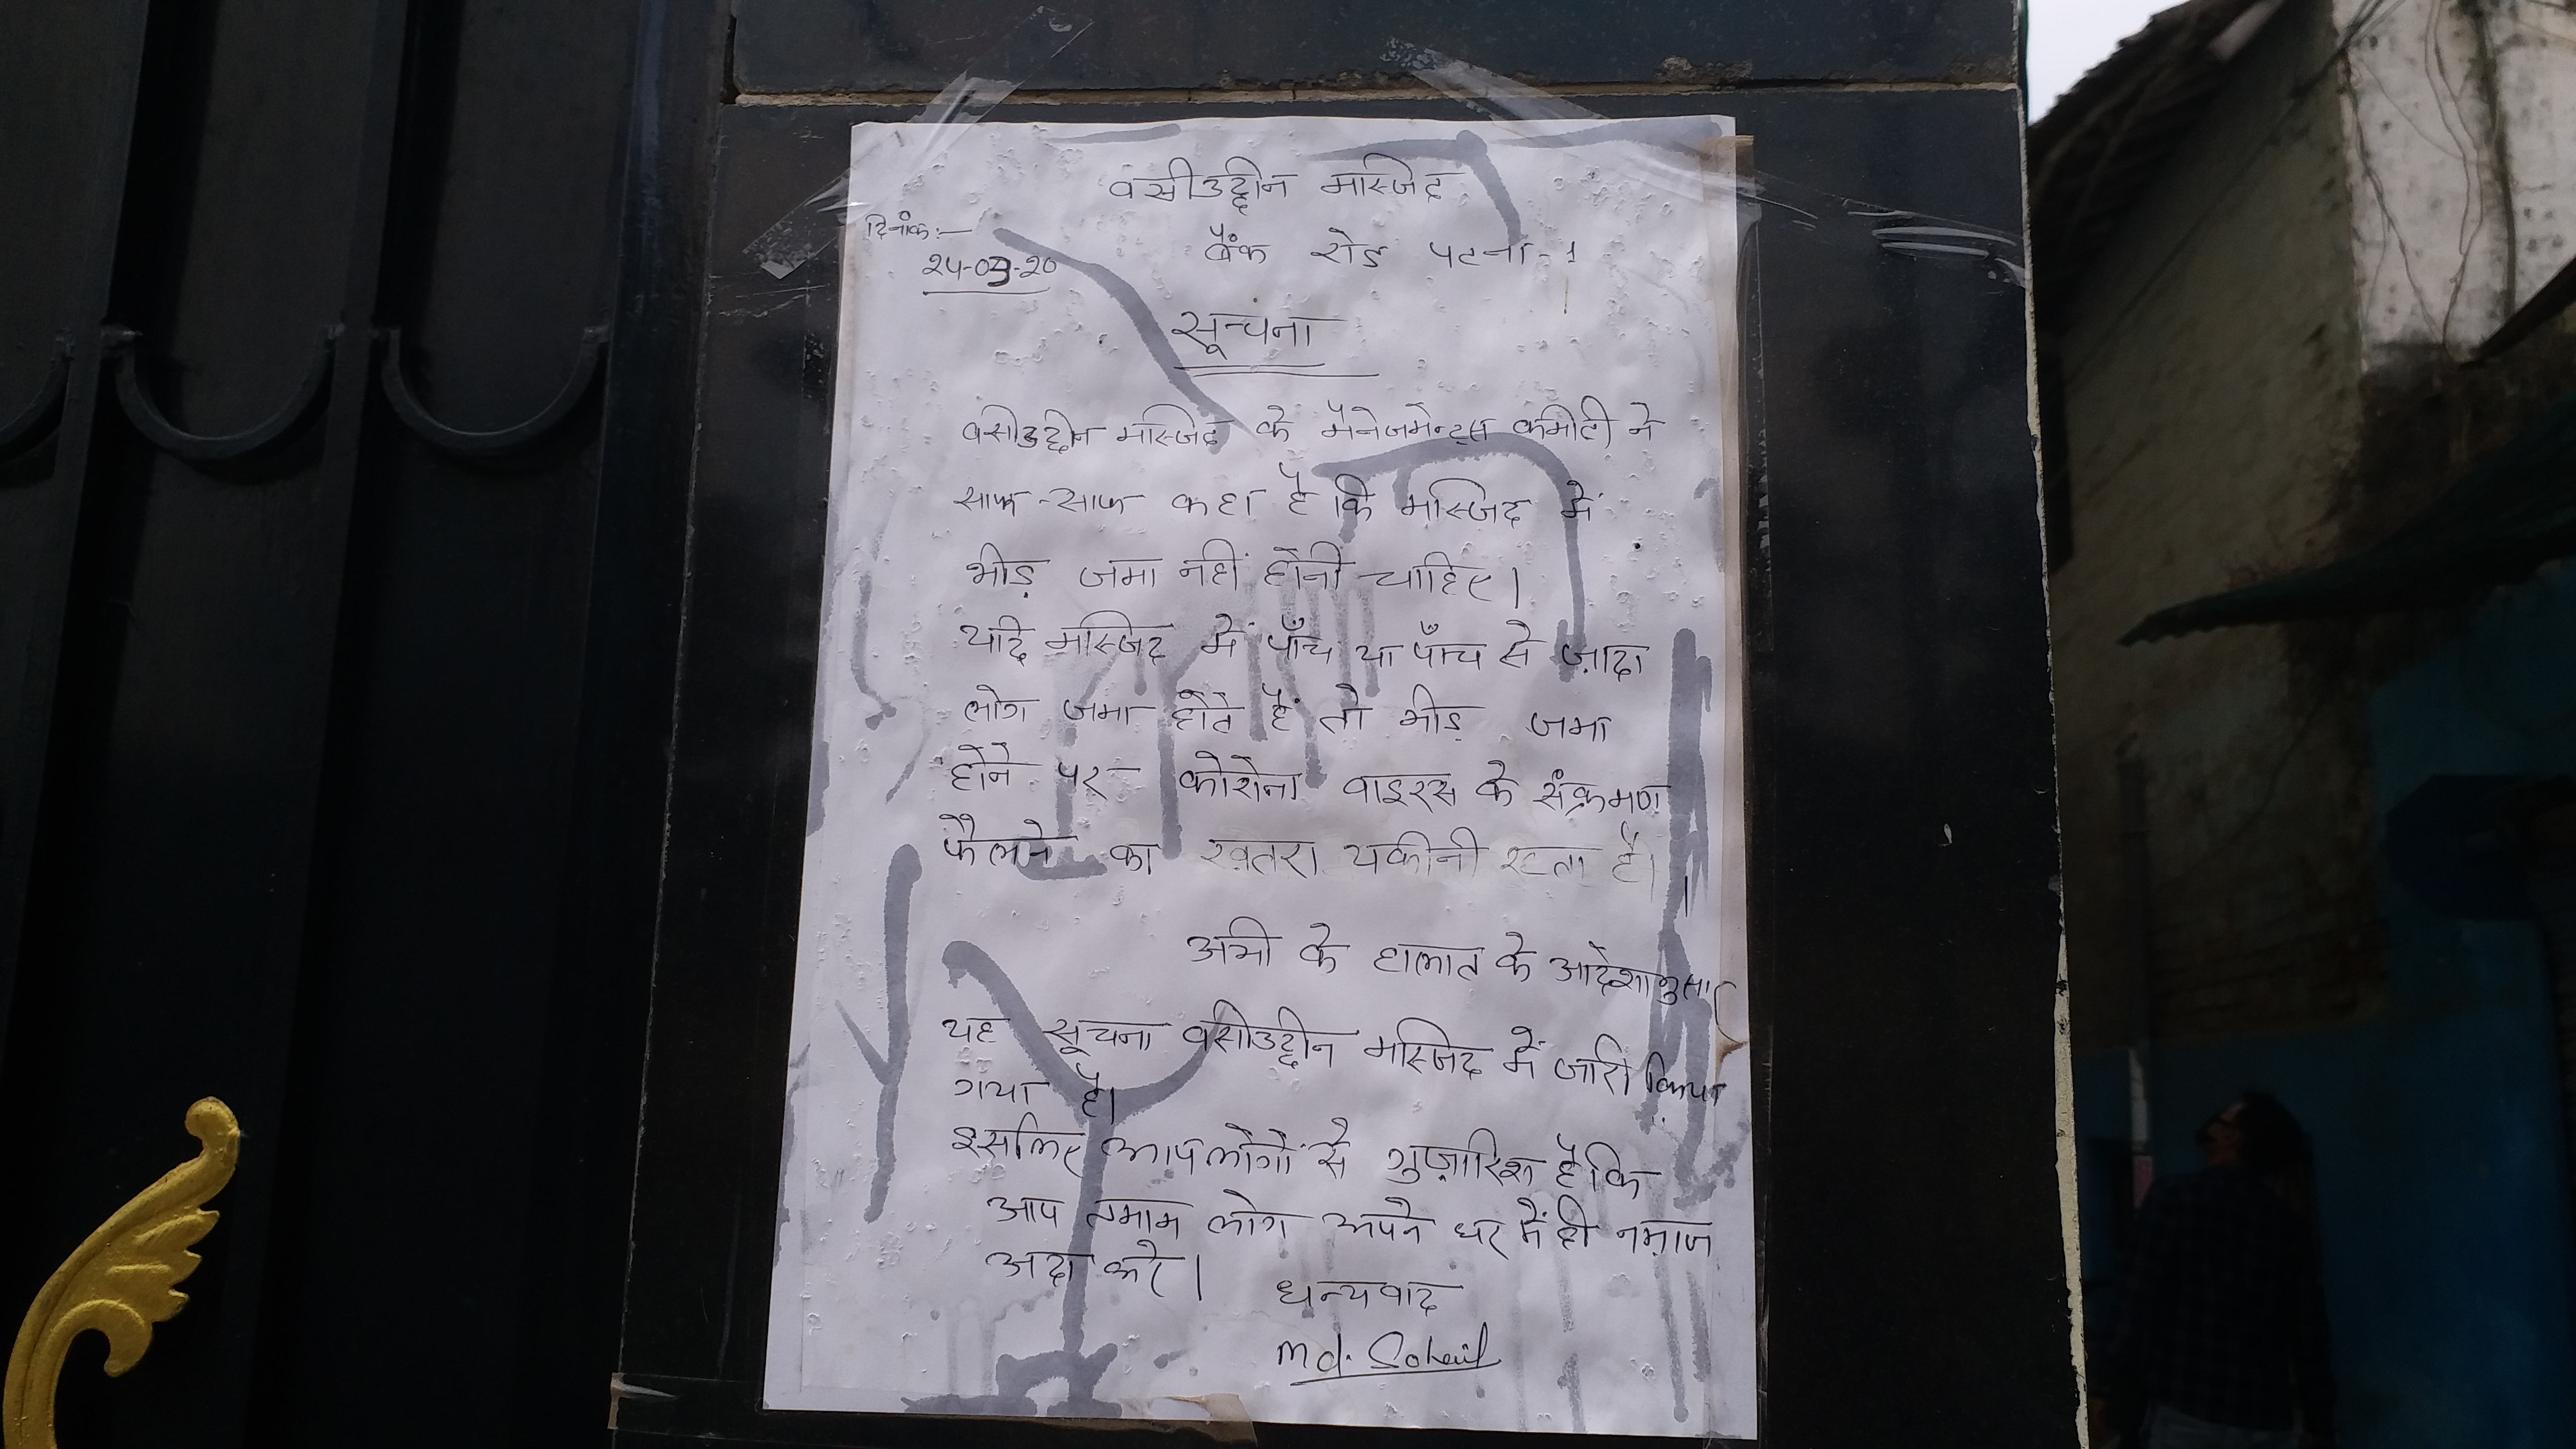 वसीउद्दीन मस्जिद
दिनांक:-
बैंक रोड पटना-1
24-03-20
सूचना
वसीउद्दीन मस्जिद के मैनेजमेन्ट्स कमीटी ने
साफ-साफ कहा है कि मस्जिद में
भीड़ जमा नहीं होनी चाहिए।
यदि मस्जिद में पाँच या पाँच से ज़ादा
लोग जमा होते हैं तो भीड़ जमा
होने पर कोरोना वाइरस के संक्रमण
फैलने का ख़तरा यकीनी रहता है।
अभी के हालात के आदेशानुसार
यह सूचना वसीउद्दीन मस्जिद में जारी किया
गया है।
इसलिए आपलोगों से गुज़ारिश है कि
आप तमाम लोग अपने घर में ही नमाज़
अदा करे।
धन्यवाद
Md. Sohail